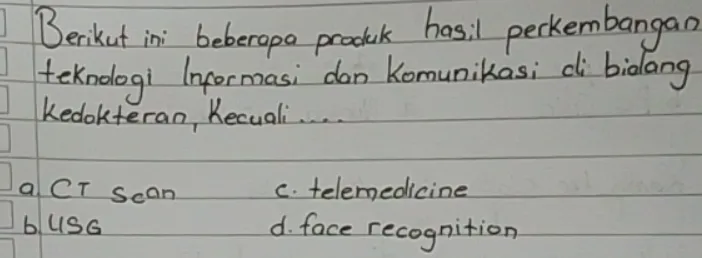 Berikut ini beberapa produk hasil perkembangan
teknologi Informasi dan Komunikasi di bidang
Kedokteran, Kecuali....
a. CT Scan c. telemedicine
b. USG d. face recognition